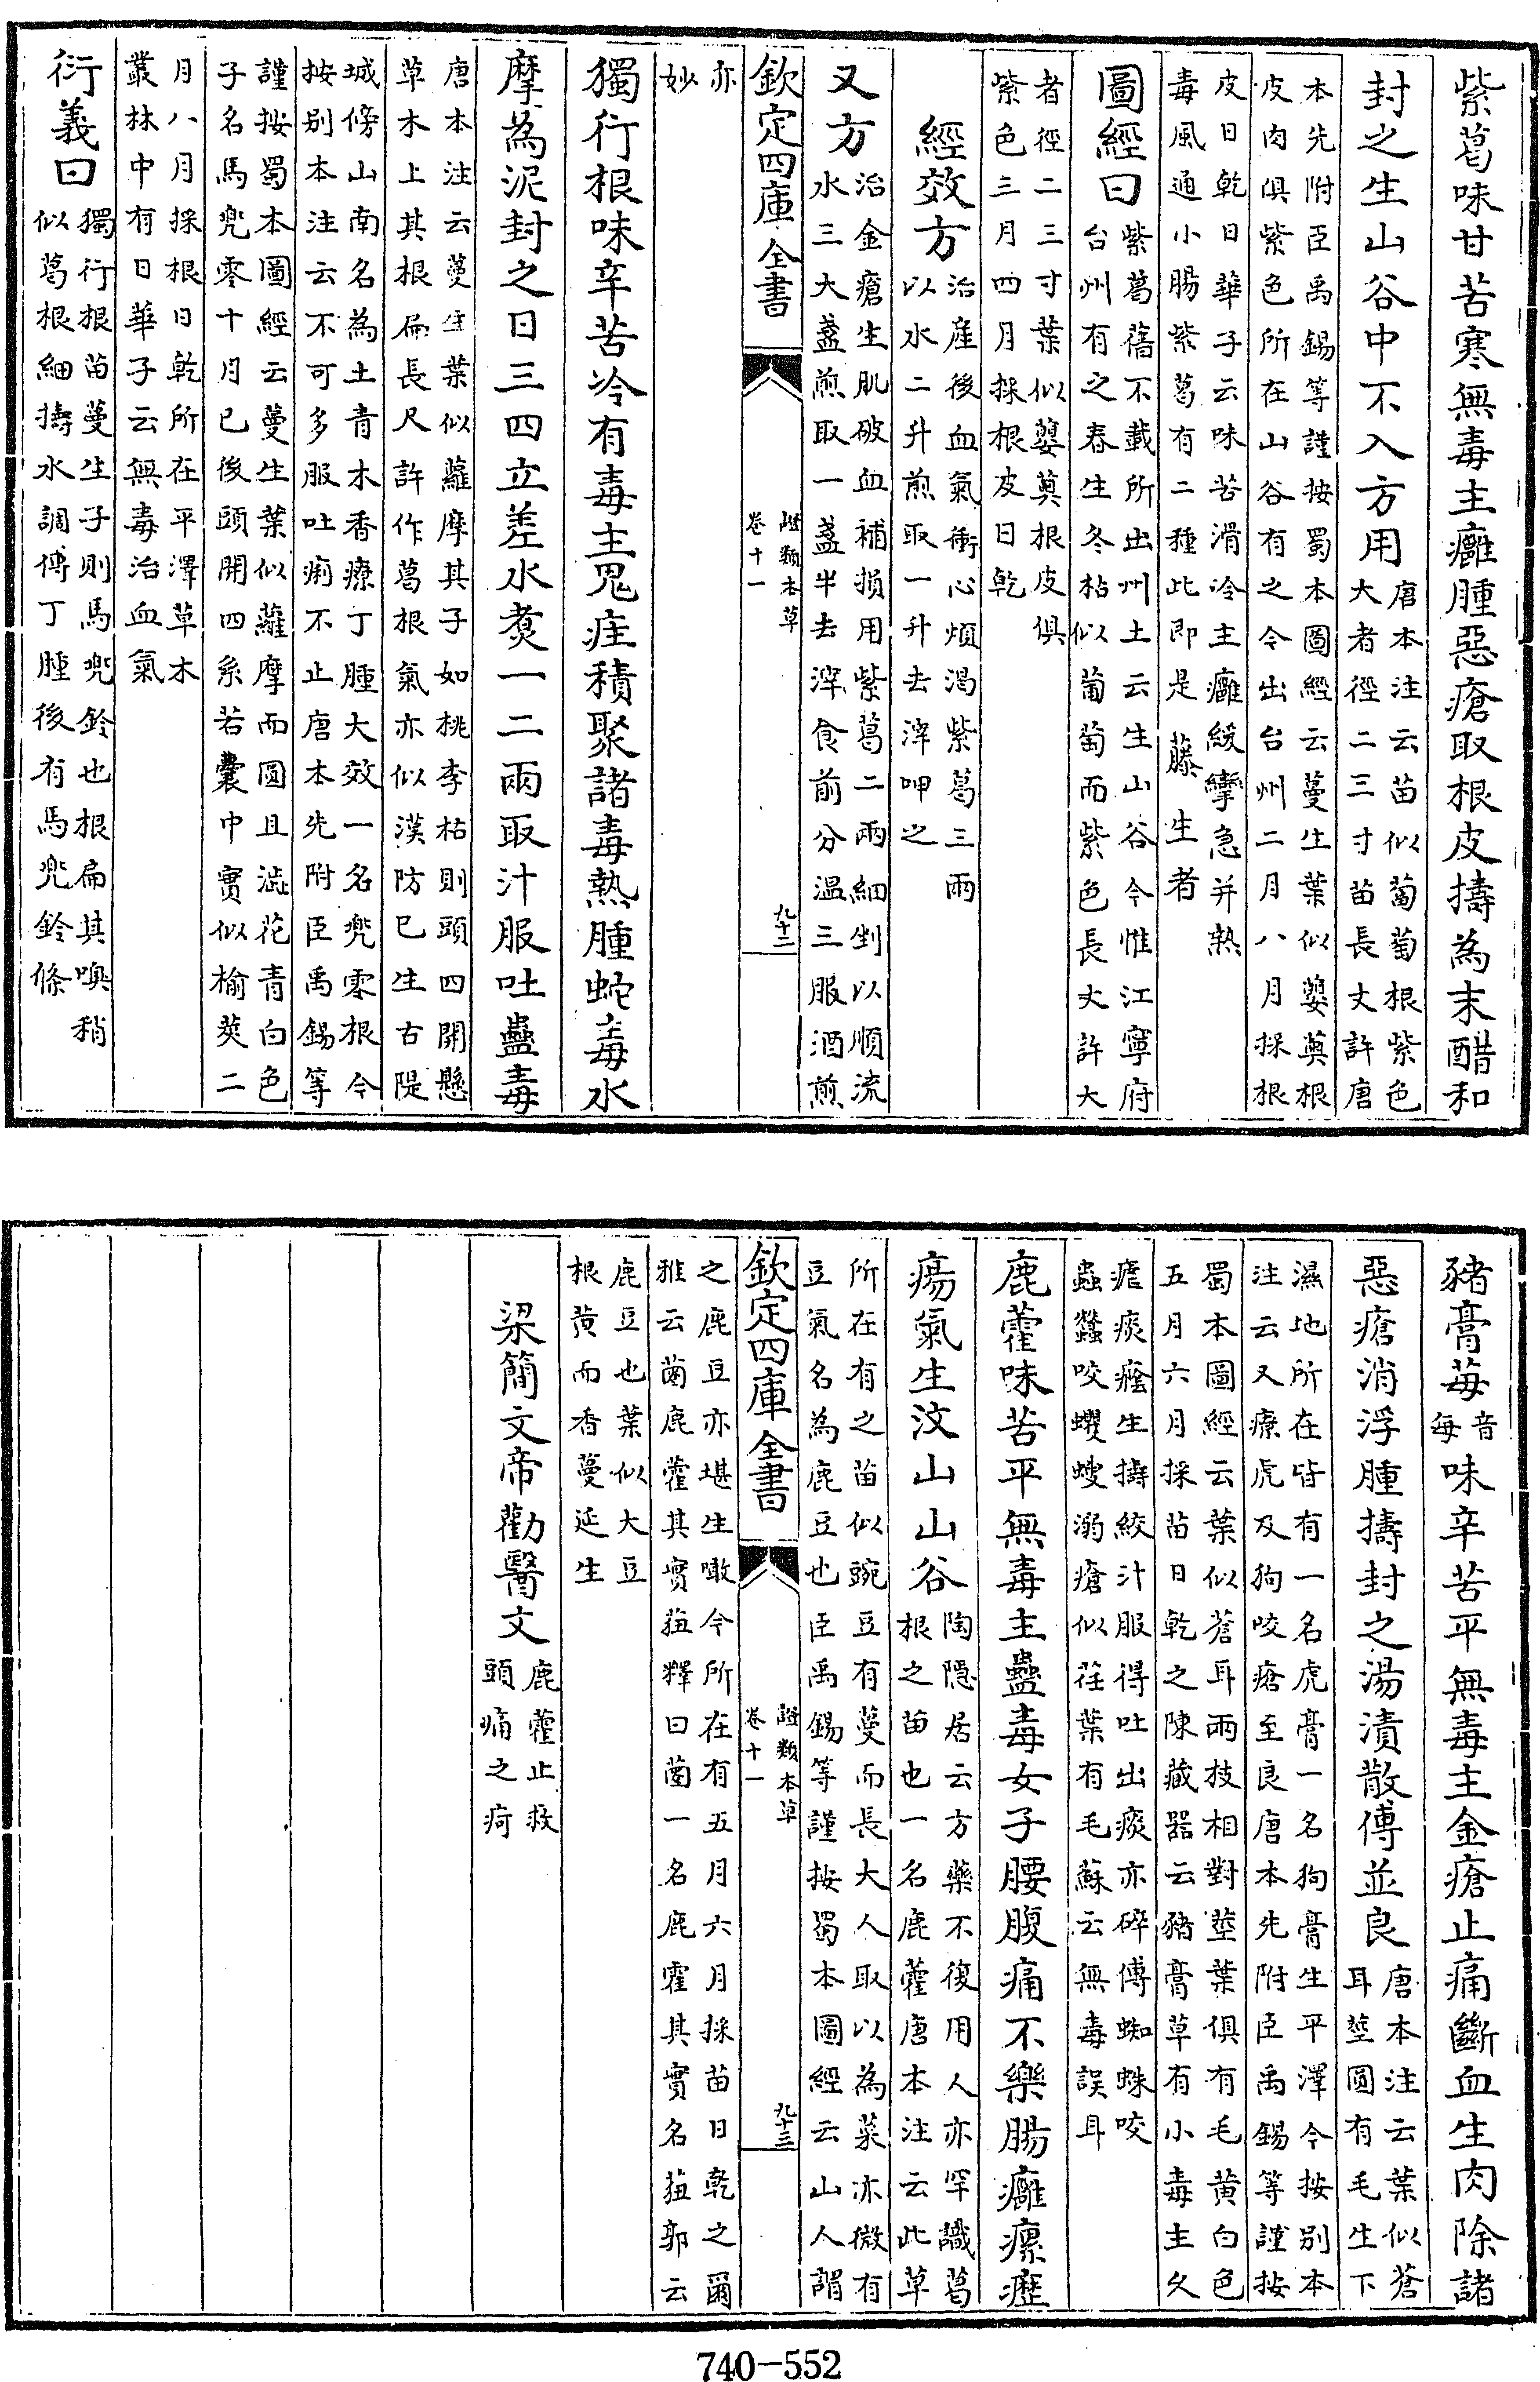 紫葛味甘苦寒無毒主癰腫惡瘡取根皮擣為末醋和
封之生山谷中不入方用唐本注云苗似葡萄根紫色大者徑二三寸苗長丈許唐
本先附臣禹錫等謹按蜀本圖經云蔓生葉似蘡薁根皮肉俱紫色所在山谷有之今出台州二月八月採根
皮日乾日華子云味苦滑冷主癰緩攣急并熱毒風通小腸紫葛有二種此即是藤生者
圖經曰紫葛舊不載所出州土云生山谷今惟江寧府台州有之春生冬枯似葡萄而紫色長丈許大
者徑二三寸葉似蘡薁根皮俱紫色三月四月採根皮日乾
經效方治産後血氣衝心煩渴紫葛三兩以水二升煎取一升去滓呷之
又方治金瘡生肌破血補損用紫葛二兩細剉以順流水三大盞煎取一盞半去滓食前分温三服酒煎
欽定四庫全書 證類本草卷十一 九十二
亦妙
獨行根味辛苦冷有毒主鬼疰積聚諸毒熱腫蛇毒水
摩為泥封之日三四立差水煑一二兩取汁服吐蠱毒
唐本注云蔓生葉似蘿摩其子如桃李枯則頭四開懸草木上其根扁長尺許作葛根氣亦似漢防已生古隄
城傍山南名為土青木香療丁腫大效一名兜零根今按别本注云不可多服吐痢不止唐本先附臣禹錫等
謹按蜀本圖經云蔓生葉似蘿摩而圓且澁花青白色子名馬兜零十月已後頭開四系若囊中實似榆莢二
月八月採根日乾所在平澤草木叢林中有日華子云無毒治血氣
衍義曰獨行根苗蔓生子則馬兜鈴也根扁其嗅稍似葛根細擣水調傅丁腫後有馬兜鈴條
豬膏莓音每味辛苦平無毒主金瘡止痛斷血生肉除諸
惡瘡消浮腫擣封之湯漬散傅並良唐本注云葉似蒼耳莖圓有毛生下
濕地所在皆有一名虎膏一名狗膏生平澤今按别本注云又療虎及狗咬瘡至良唐本先附臣禹錫等謹按
蜀本圖經云葉似蒼耳兩枝相對莖葉俱有毛黄白色五月六月採苗日乾之陳藏器云豬膏草有小毒主久
瘧痰癊生擣絞汁服得吐出痰亦碎傅蜘蛛咬蟲蠶咬蠼螋溺瘡似荏葉有毛蘇云無毒誤耳
鹿藿味苦平無毒主蠱毒女子腰腹痛不樂腸癰瘰癧
瘍氣生汶山山谷陶隱居云方藥不復用人亦罕識葛根之苗也一名鹿藿唐本注云此草
所在有之苗似豌豆有蔓而長大人取以為菜亦微有豆氣名為鹿豆也臣禹錫等謹按蜀本圖經云山人謂
欽定四庫全書 證類本草卷十一 九十三
之鹿豆亦堪生噉今所在有五月六月採苗日乾之爾雅云蔨鹿藿其實莥釋曰蔨一名鹿霍其實名莥郭云
鹿豆也葉似大豆根黄而香蔓延生
梁簡文帝勸醫文鹿藿止救頭痛之疴
740-552